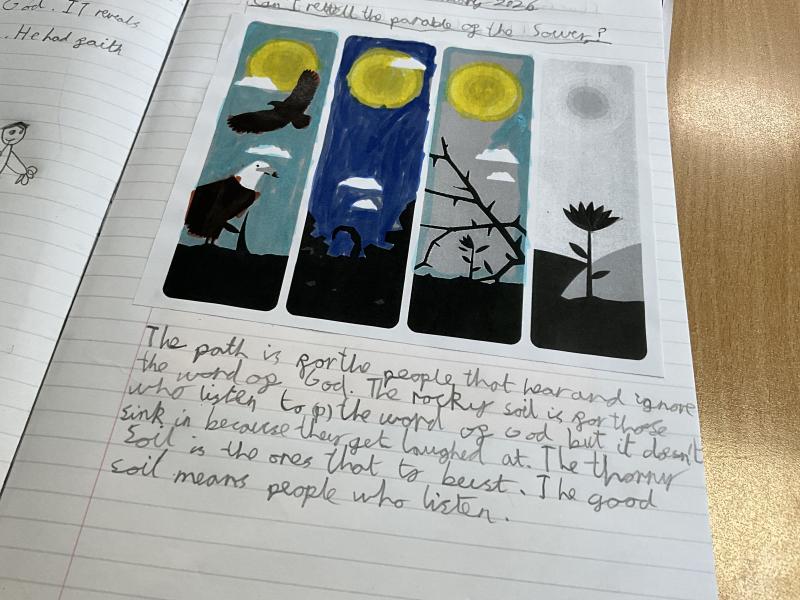 God. IT reveals
. He had faith
2026
Can I retell the parable of the Sower?
The path is for the people that hear and ignore
the word of God. The rocky soil is for those
who listen to (p) the word of God but it doesn't
sink in because they get laughed at. The thorny
soil is the ones that to beust. The good
soil means people who listen.